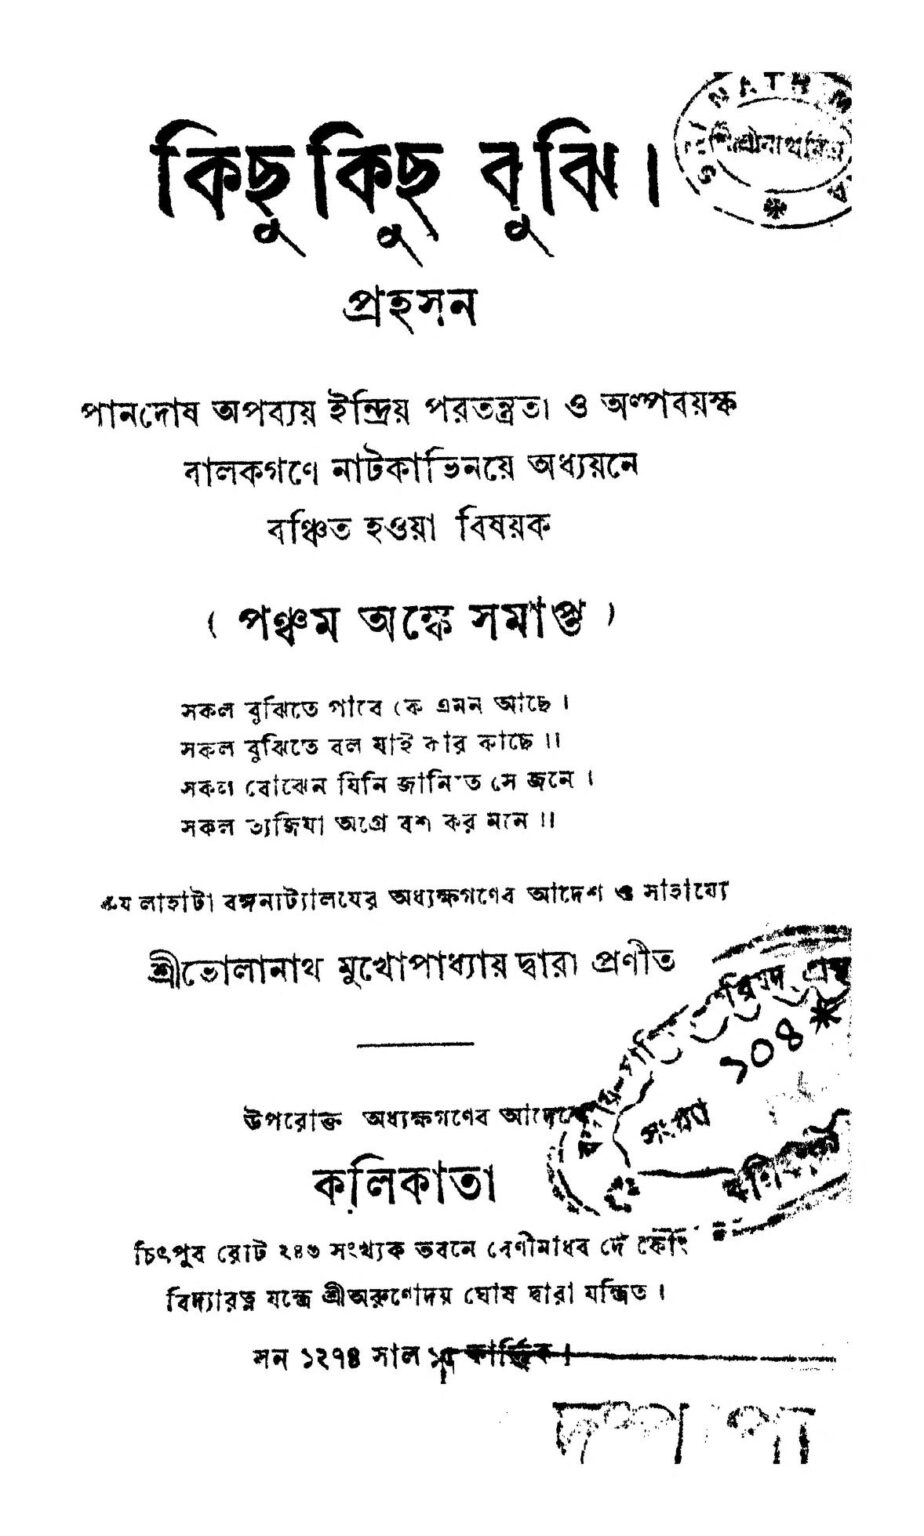 SRINATH M
শ্রীশ্রীনাথমিত্র
কিছু কিছু বুঝি।
প্রহসন
পানদোষ অপব্যয় ইন্দ্রিয় পরতন্ত্রতা ও অল্পবয়স্ক
বালকগণে নাটকাভিনয়ে অধ্যয়নে
বঞ্চিত হওয়া বিষয়ক
( পঞ্চম অঙ্কে সমাপ্ত )
সকল বুঝিতে পারে কে এমন আছে।
সকল বুঝিতে বল যাই কার কাছে॥
সকল বোঝেন যিনি জানিতে সে জনে।
সকল ত্যজিয়া অগ্রে বশ কর মনে॥
লাহাটা বঙ্গনাট্যালয়ের অধ্যক্ষগণের আদেশ ও সাহায্যে
শ্রীভোলানাথ মুখোপাধ্যায় দ্বারা প্রণীত
উপরোক্ত অধ্যক্ষগণের আদেশে
কলিকাতা
চিৎপুর রোড ২৪৬ সংখ্যক ভবনে বেণীমাধব দে কোং
বিদ্যারত্ন যন্ত্রে শ্রীঅরুণোদয় ঘোষ দ্বারা যন্ত্রিত।
সন ১২৭৪ সাল ১৫ কার্ত্তিক।
১০৪
সংখ্যা
দুষ্প্রাপ্য